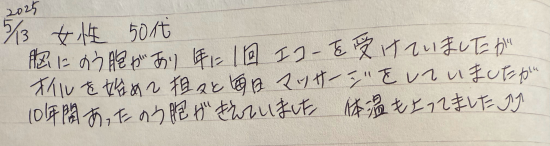 2025
5/13 女性 50代
胸にのう胞があり 年に1回 エコーを受けていましたが
オイルを始めて 担々と毎日 マッサージをしていましたが
10年間あったのう胞がきえていました 体温も上ってました↑↑